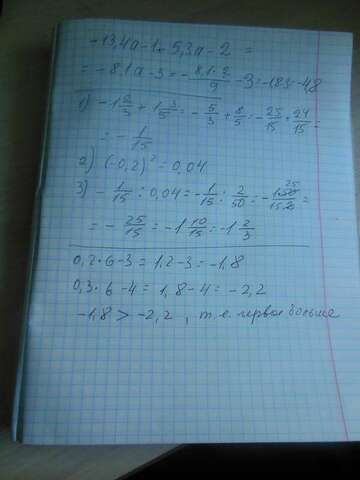 -13,4a-1+5,3a-2 =
= -8,1a-3=-\frac{8,1·2}{9}-3=-1,8-3=-4,8
1) -1\frac{2}{3}+1\frac{3}{5}=-\frac{5}{3}+\frac{8}{5}=-\frac{25}{15}+\frac{24}{15}=
= -\frac{1}{15}
2) (-0,2)^2=0,04
3) -\frac{1}{15}:0,04=-\frac{1}{15}:\frac{2}{50}=-\frac{1·50}{15·2}=
= -\frac{25}{15}=-1\frac{10}{15}=-1\frac{2}{3}
0,2·6-3=1,2-3=-1,8
0,3·6-4=1,8-4=-2,2
-1,8 > -2,2, т.е. первое больше